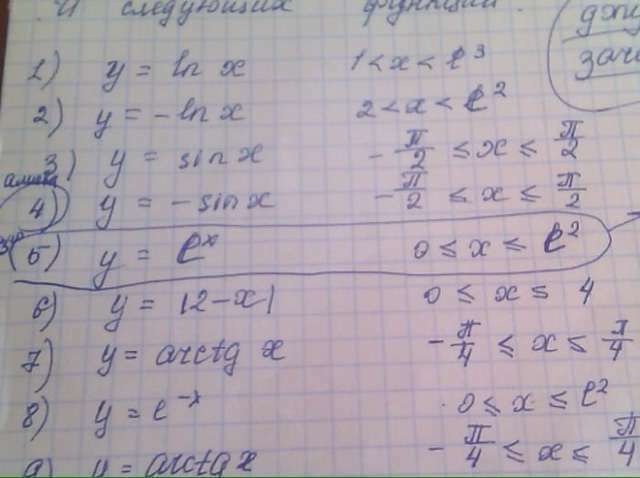 И следующих функций.
1) y = ln x 1 < x < e³
2) y = -ln x 2 < x < e²
3) y = sin x -π/2 ≤ x ≤ π/2
4) y = -sin x -π/2 ≤ x ≤ π/2
5) y = eˣ 0 ≤ x ≤ e²
6) y = |2-x| 0 ≤ x ≤ 4
7) y = arctg x -π/4 ≤ x ≤ π/4
8) y = e⁻ˣ 0 ≤ x ≤ e²
9) y = arctg x -π/4 ≤ x ≤ π/4